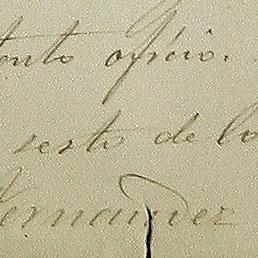 tento oficio.
resto de lo
Hernandez